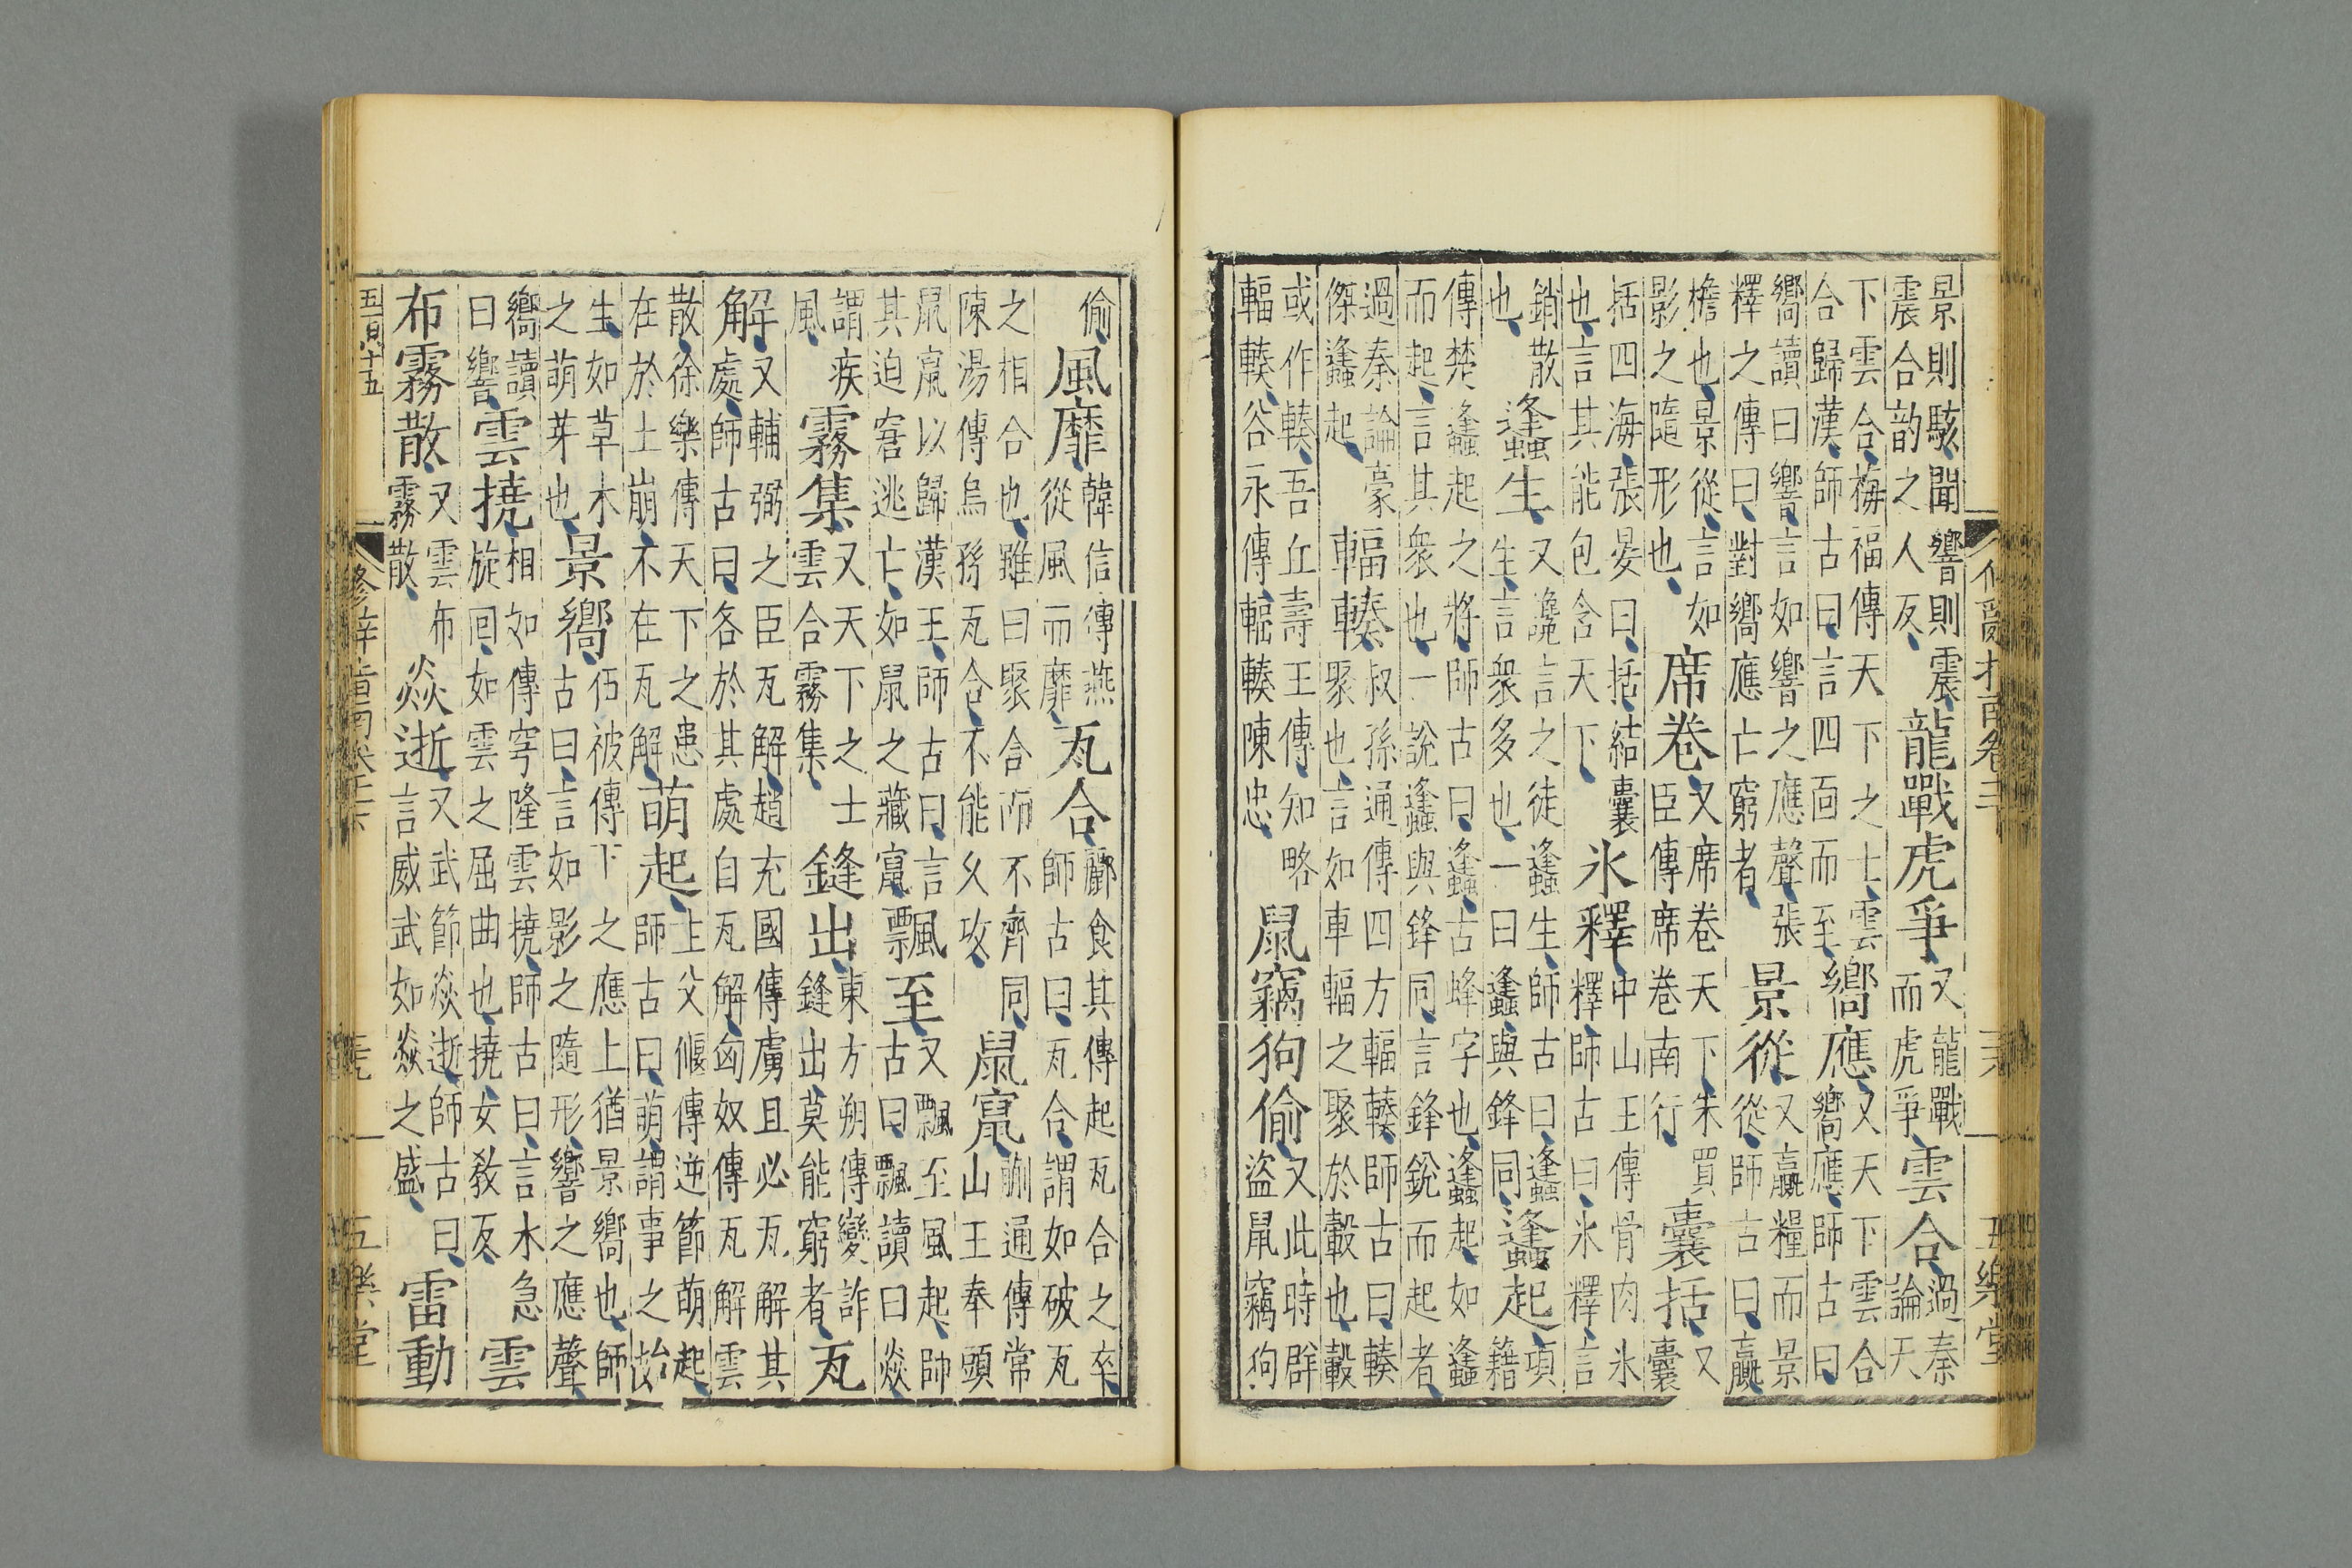 景則駭聞響則震震合韵之人反、龍戰虎爭又龍戰而虎爭、雲合過秦論天
下雲合、梅福傳天下之士、雲合歸漢、師古曰、言四面而至、嚮應又天下雲合嚮應、師古曰、
嚮讀曰響言如響之應聲、張釋之傳曰、對嚮應亡窮者、景從又贏糧而景從、師古曰、贏
檐也、景從、言如影之隨形也、席卷又席卷天下、朱買臣傳席卷南行、囊括又囊
括四海、張晏曰、括、結囊也、言其能包含天下、氷釋中山王傳骨肉氷釋、師古曰氷釋、言
銷散也、蠭生又讒言之徒蠭生、師古曰、蠭生、言衆多也、一曰蠭與鋒同、蠭起項籍
傳楚蠭起之將師古曰、蠭古蜂字也、蠭起、如蠭而起、言其衆也、一說蠭與鋒同、言鋒銳而起者、
過秦論豪傑蠭起、輻輳叔孫通傳四方輻輳、師古曰、輳聚也、言如車輻之聚於轂也、轂
或作輳、吾丘壽王傳、知略輻輳、谷永傳輻輳陳忠、鼠竊狗偷又此時群盜鼠竊狗
五樂堂
偷、風靡韓信傳燕從風而靡、瓦合酈食其傳起瓦合之卒、師古曰、瓦合、謂如破瓦
之相合也、雖曰聚合而不齊同、陳湯傳烏孫瓦合、不能乆攻、鼠竄蒯通傳常山王奉頭
鼠竄以歸漢王、師古曰、言其迫窘逃亡、如鼠之藏竄、飄至又飄至風起、師古曰、飄讀曰焱
謂疾風、霧集又天下之士雲合霧集、鏠出、東方朔傳變詐鏠出、莫能窮者、瓦
解、又輔弼之臣瓦解、趙充國傳虜且必瓦解其處、師古曰、各於其處自瓦解、匈奴傳瓦解雲
散、徐樂傳天下之患在於土崩、不在瓦解、萌起、主父偃傳逆節萌起、師古曰、萌、謂事之始
生、如草木之萌芽也、景嚮、伍被傳下之應上猶景嚮也、師古曰、言如影之隨形、響之應聲、
嚮讀曰響、雲撓、相如傳穹隆雲撓、師古曰、言水急旋回、如雲之屈曲也、撓、女教反、雲
布霧散、又雲布霧散、焱逝、又武節焱逝、師古曰、言威武如焱之盛、雷動
五樂堂